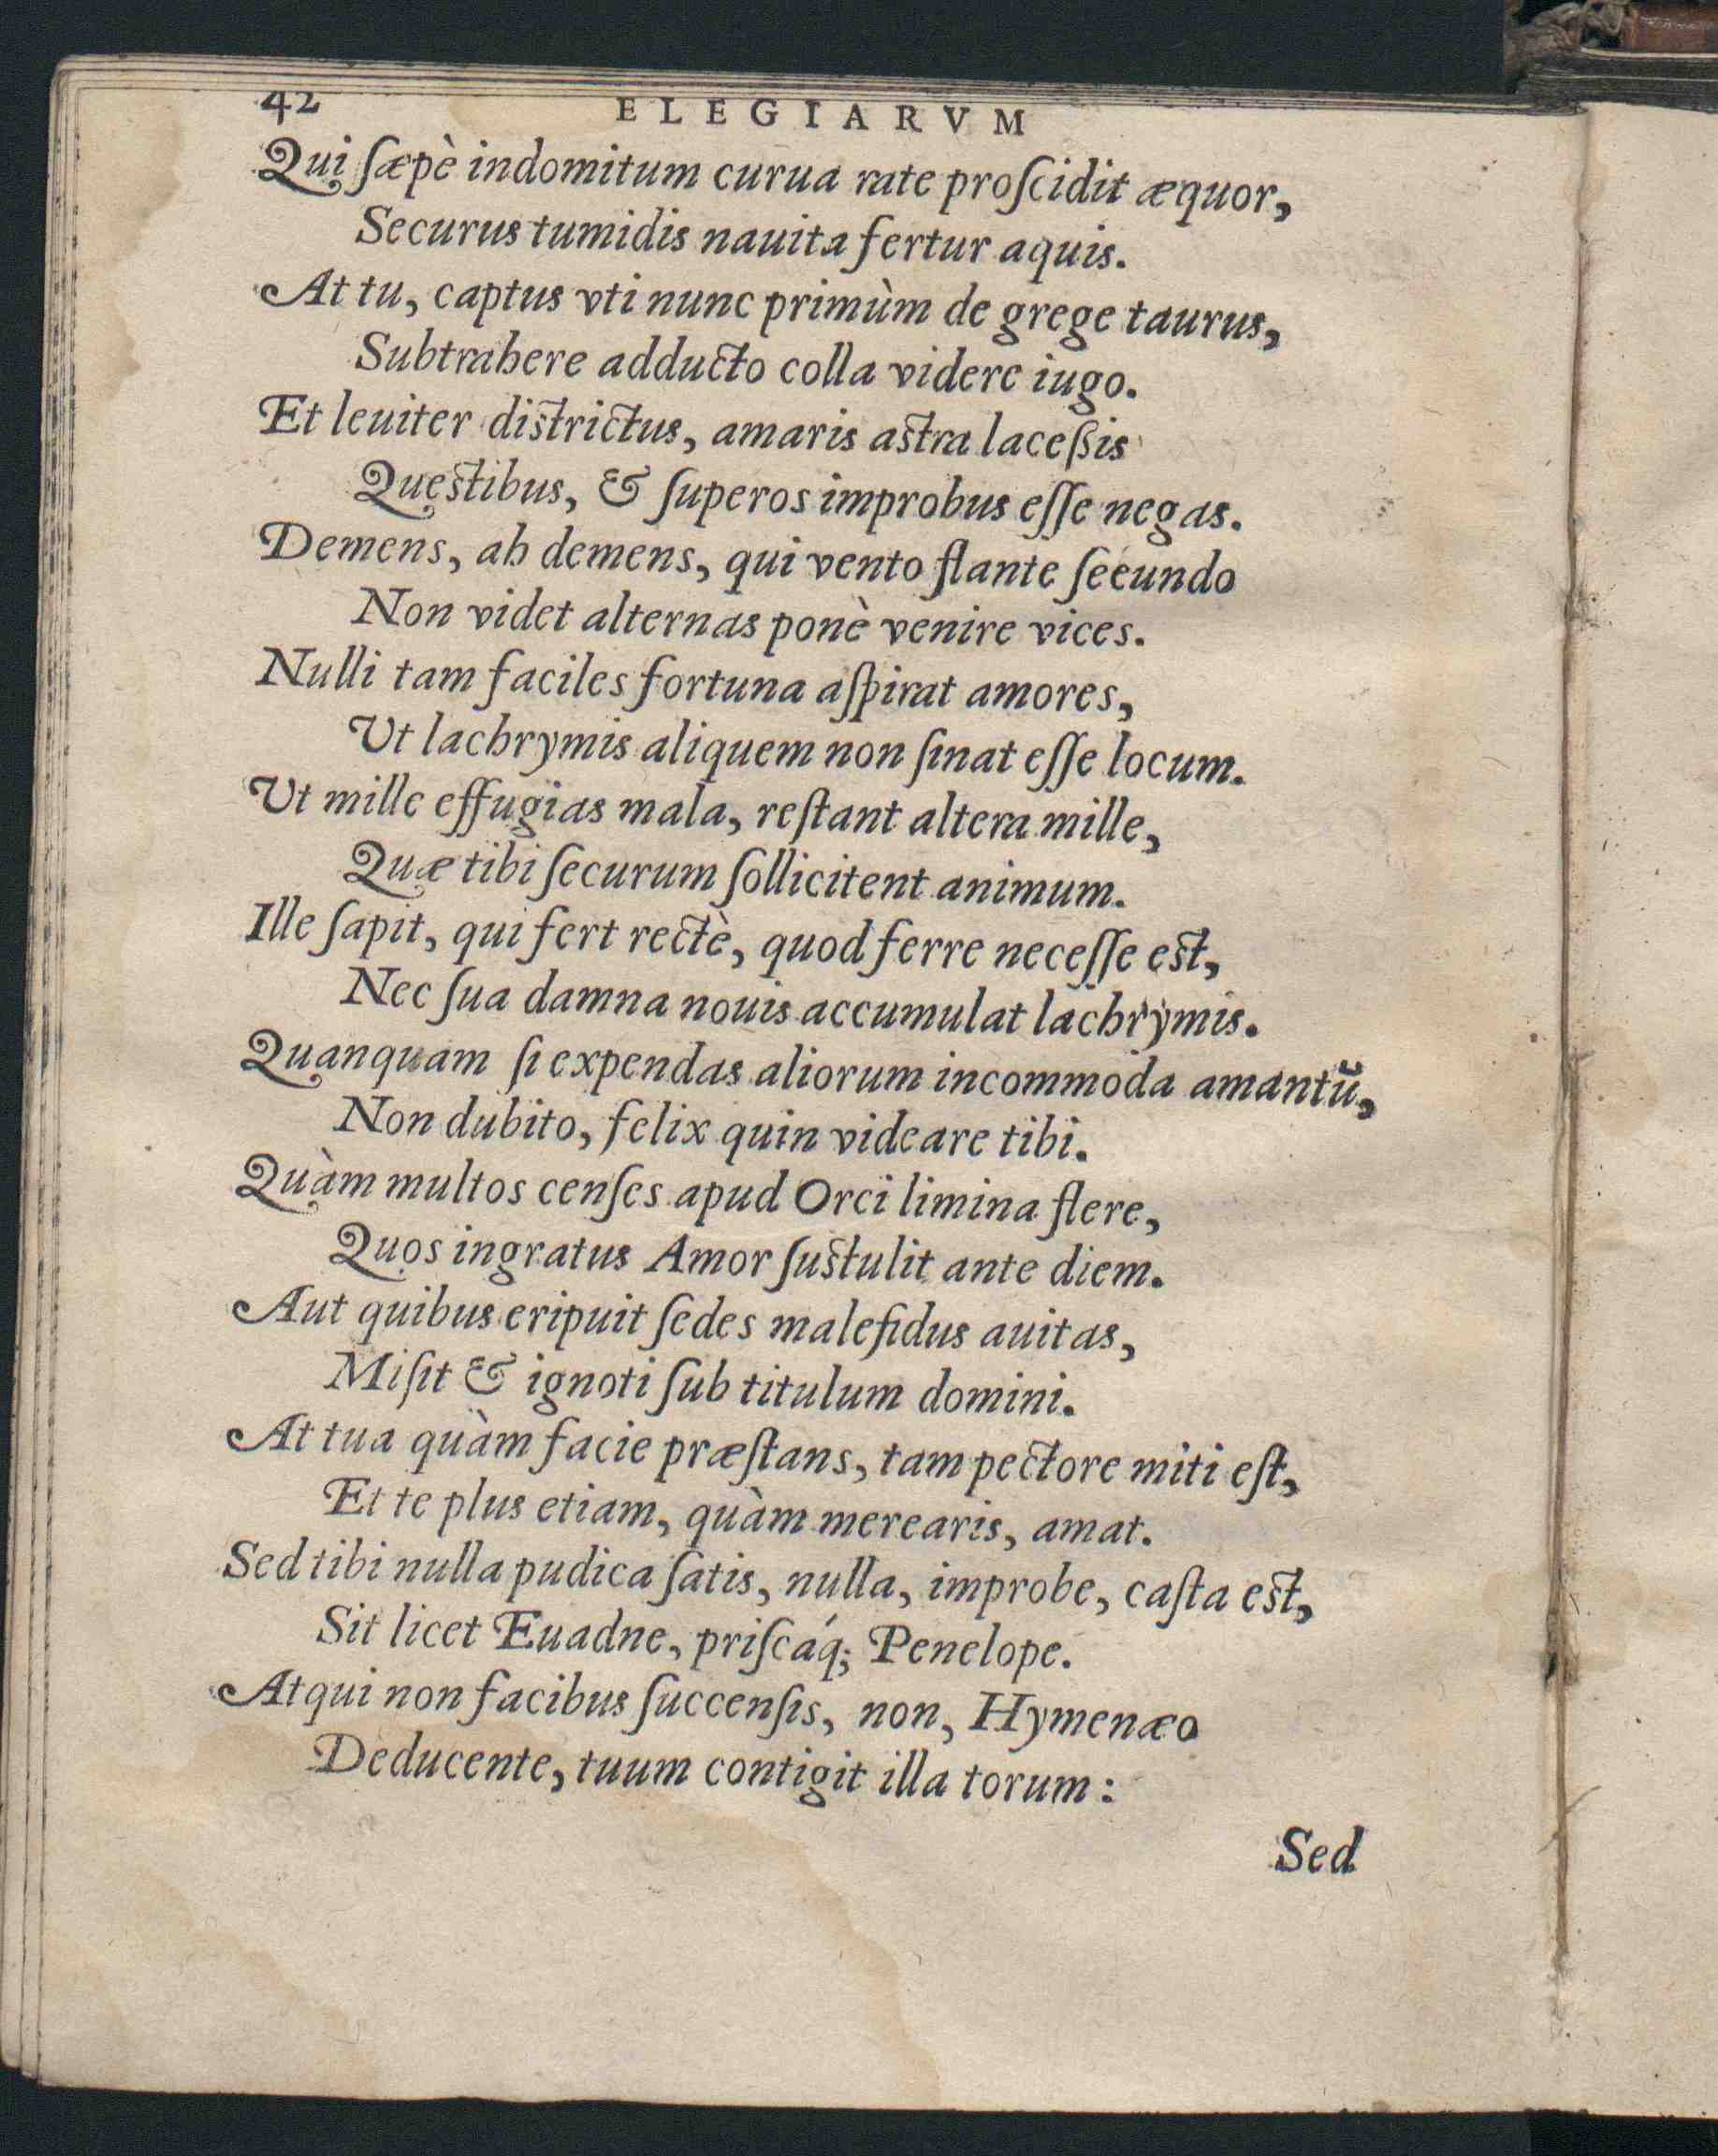 42 ELEGIARVM
Qui sæpè indomitum curua rate proscidit æquor,
Securus tumidis nauita fertur aquis.
At tu, captus vti nunc primùm de grege taurus,
Subtrahere adducto colla videre iugo.
Et leuiter districtus, amaris astra lacessis
Questibus, & superos improbus esse negas.
Demens, ah demens, qui vento flante seeundo
Non videt alternas ponè venire vices.
Nulli tam faciles fortuna aspirat amores,
Ut lachrymis aliquem non sinat esse locum.
Ut mille effugias mala, restant altera mille,
Quæ tibi securum sollicitent animum.
Ille sapit, qui fert rectè, quod ferre necesse est,
Nec sua damna nouis accumulat lachrymis.
Quanquam si expendas aliorum incommoda amantũ,
Non dubito, felix quin videare tibi.
Quàm multos censes apud Orci limina flere,
Quos ingratus Amor sustulit ante diem.
Aut quibus eripuit sedes malefidus auitas,
Misit & ignoti sub titulum domini.
At tua quàm facie præstans, tam pectore miti est,
Et te plus etiam, quàm merearis, amat.
Sed tibi nulla pudica satis, nulla, improbe, casta est,
Sit licet Euadne, priscáq; Penelope.
Atqui non facibus succensis, non, Hymenæo
Deducente, tuum contigit illa torum:
Sed